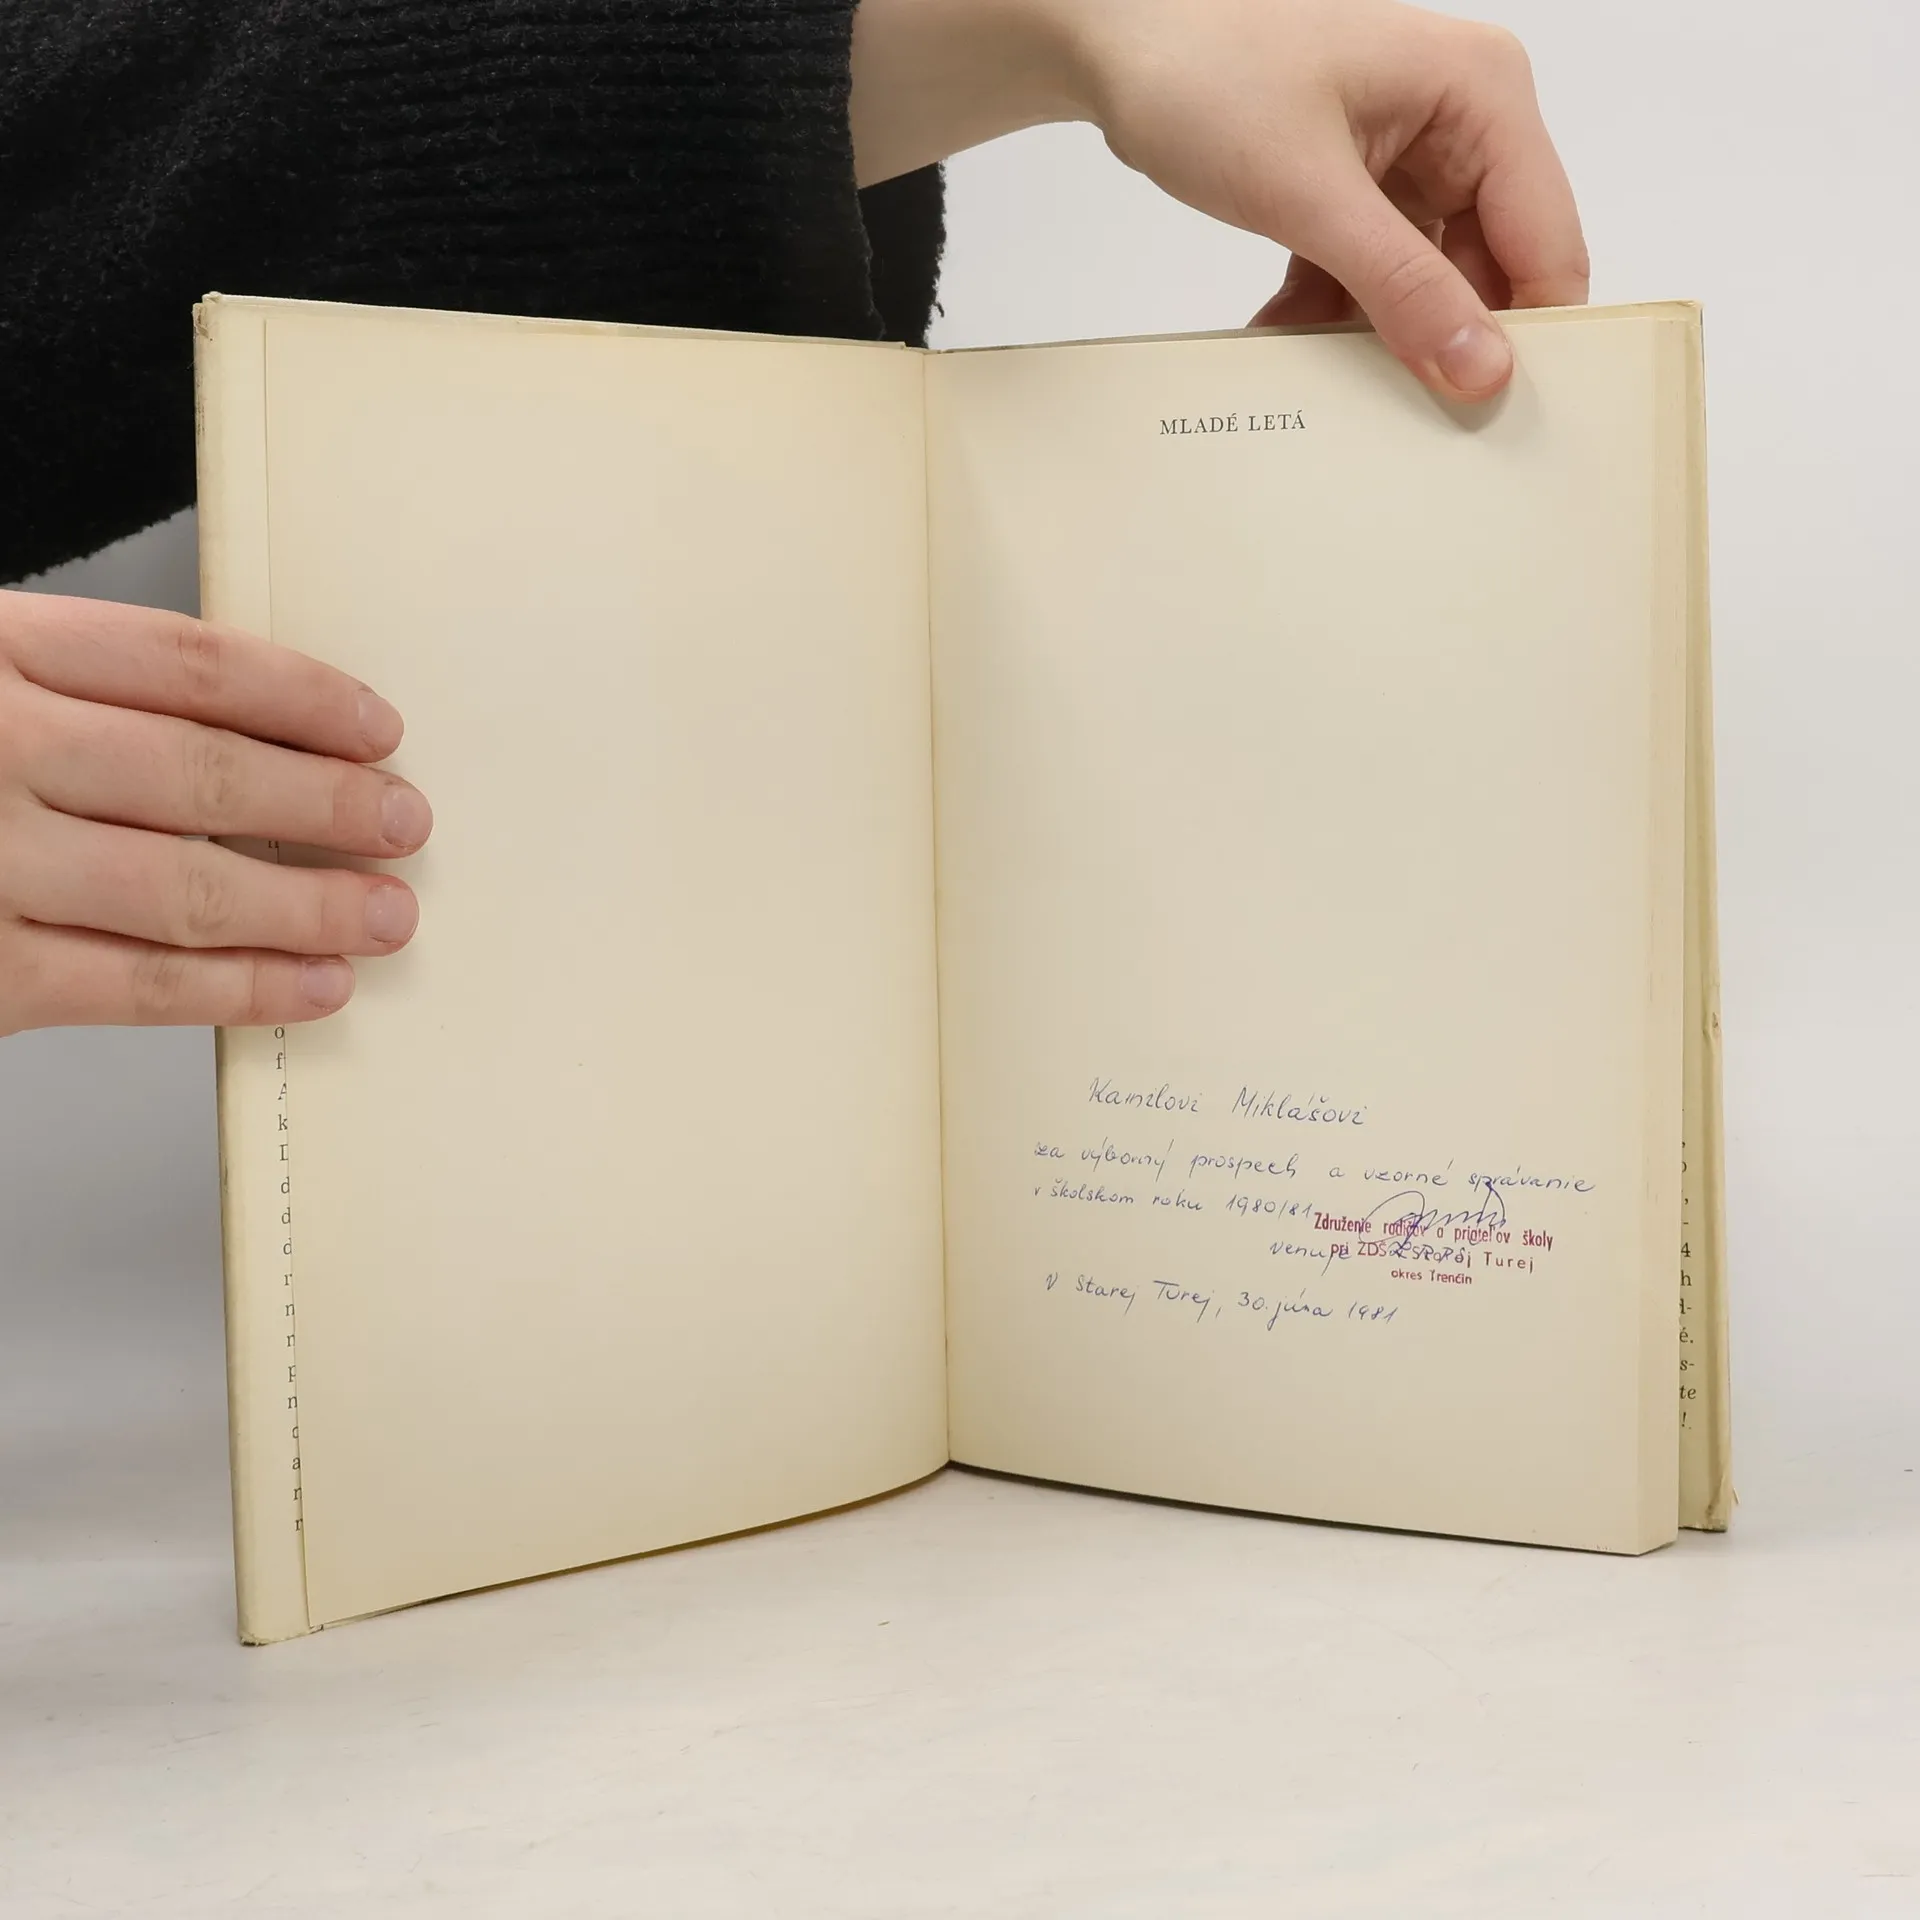 MLADÉ LETÁ
Kamilovi Miklášovi
za výborný prospech a vzorné správanie
v školskom roku 1980/81
Združenie rodičov a priateľov školy
venuje ZRPŠ
pri ZDŠ Starej Turej
okres Trenčín
V Starej Turej, 30. júna 1981
o
f
k
d
d
d
r
p
a
r
4
h
é.
s-
te
!